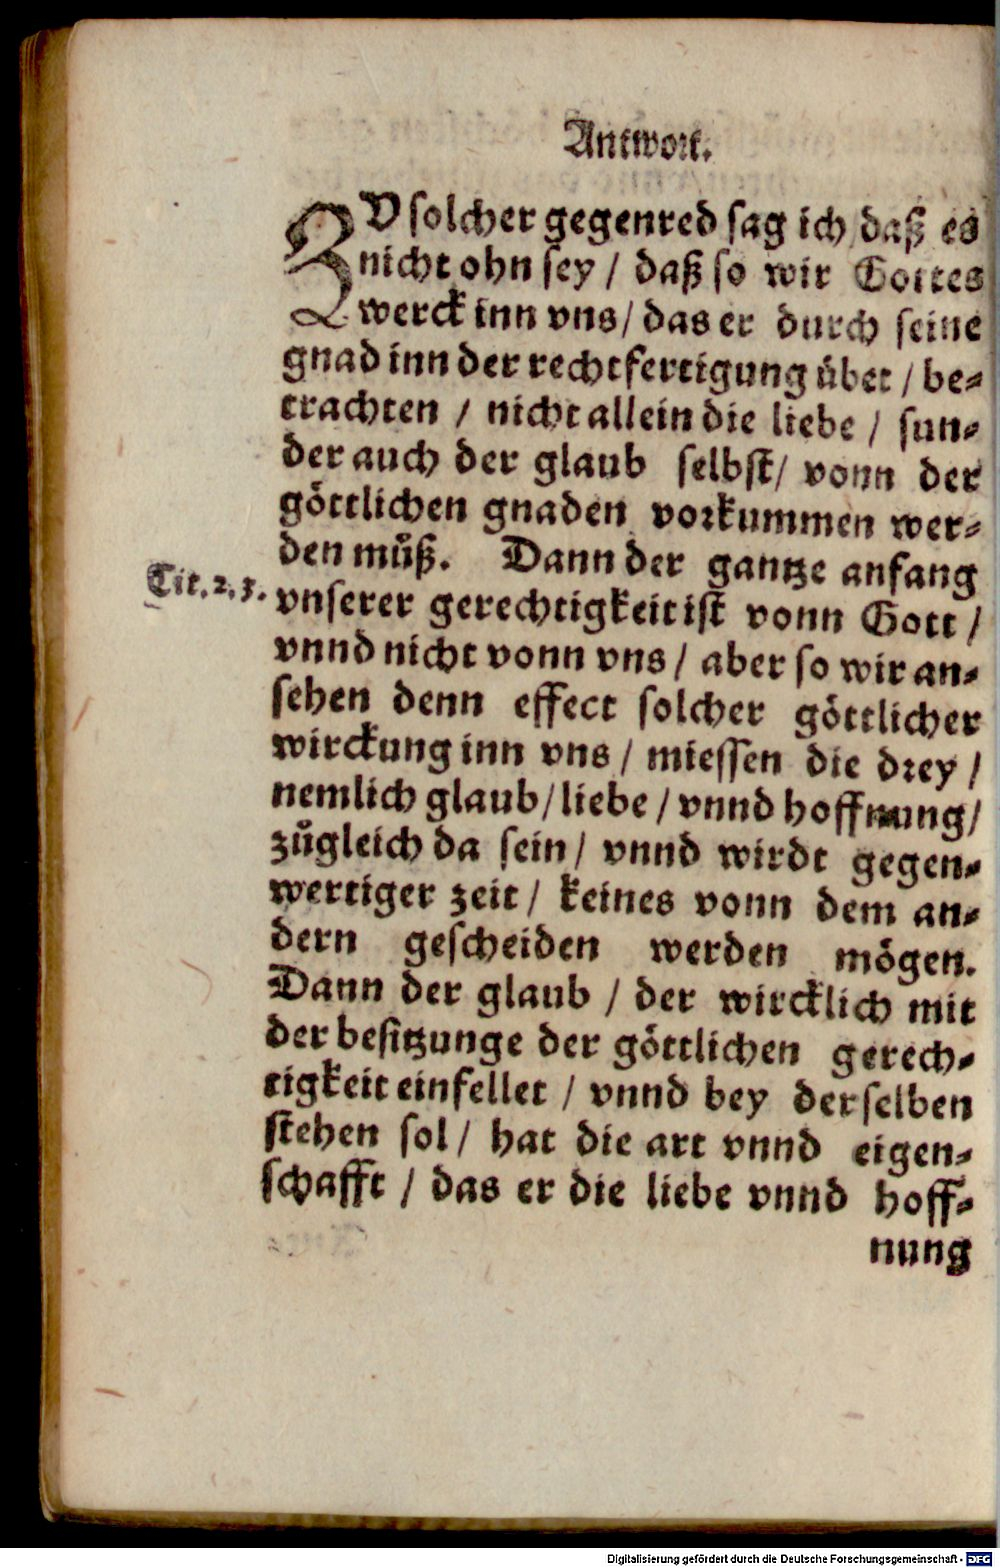 Antwort.
ZV solcher gegenred sag ich daß es
nicht ohn sey / daß so wir Gottes
werck inn vns / das er durch seine
gnad inn der rechtfertigung übet / be⸗
trachten / nicht allein die liebe / sun⸗
der auch der glaub selbst / vonn der
göttlichen gnaden vorkummen wer⸗
den můß. Dann der gantze anfang
Tit. 2, 3.
vnserer gerechtigkeit ist vonn Gott /
vnnd nicht vonn vns / aber so wir an⸗
sehen denn effect solcher göttlicher
wirckung inn vns / miessen die drey /
nemlich glaub / liebe / vnnd hoffnung /
zůgleich da sein / vnnd wirdt gegen⸗
wertiger zeit / keines vonn dem an⸗
dern gescheiden werden mögen.
Dann der glaub / der wircklich mit
der besitzunge der göttlichen gerech⸗
tigkeit einfellet / vnnd bey derselben
stehen sol / hat die art vnnd eigen⸗
schafft / das er die liebe vnnd hoff⸗
nung
Digitalisierung gefördert durch die Deutsche Forschungsgemeinschaft - DFG